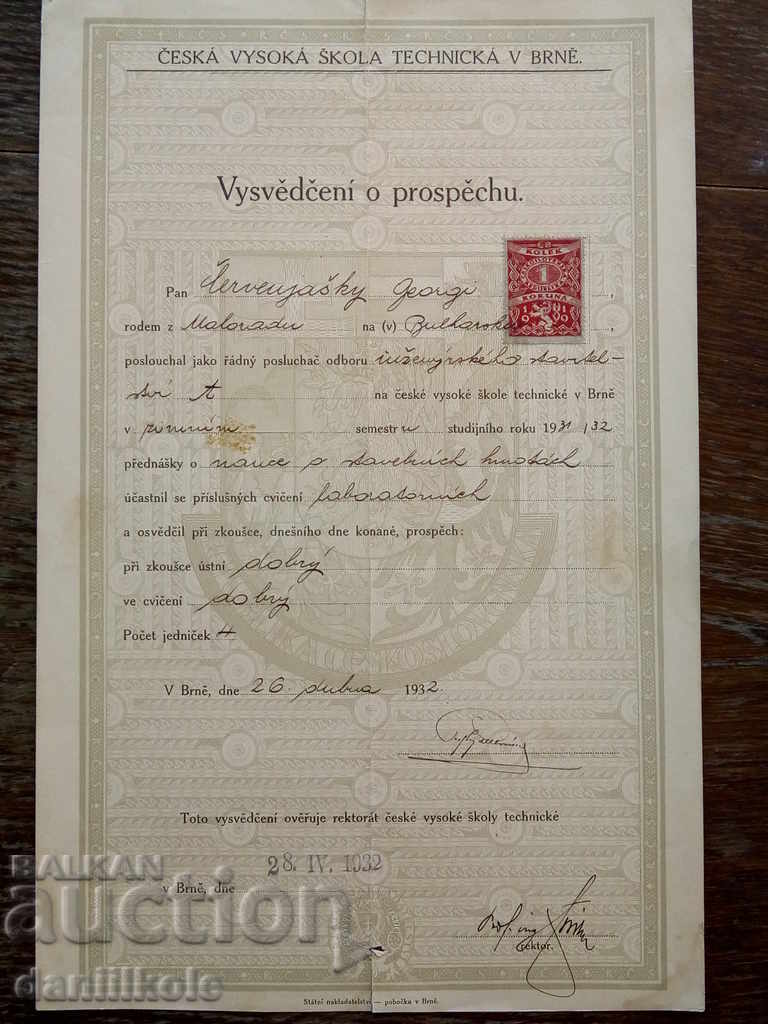 ČESKÁ VYSOKÁ ŠKOLA TECHNICKÁ V BRNĚ.
Vysvědčení o prospěchu.
KOLEK
1
KORUNA
Pan Červenjašky Georgi ,
rodem z Maloradu na (v) Bulharsku ,
poslouchal jako řádný posluchač odboru inženýrského stavitel-
ství A na české vysoké škole technické v Brně
v zimním semestru studijního roku 1931/32
přednášky o nauce o stavebních hmotách
účastnil se příslušných cvičení laboratorních
a osvědčil při zkoušce, dnešního dne konané, prospěch:
při zkoušce ústní dobrý
ve cvičení dobrý
Počet jedniček 4
V Brně, dne 26. dubna 1932.
Toto vysvědčení ověřuje rektorát české vysoké školy technické
28. IV. 1932
v Brně, dne
Prof. ing
rektor.
Státní nakladatelství — pobočka v Brně.
BALKAN
auction
daniilkole